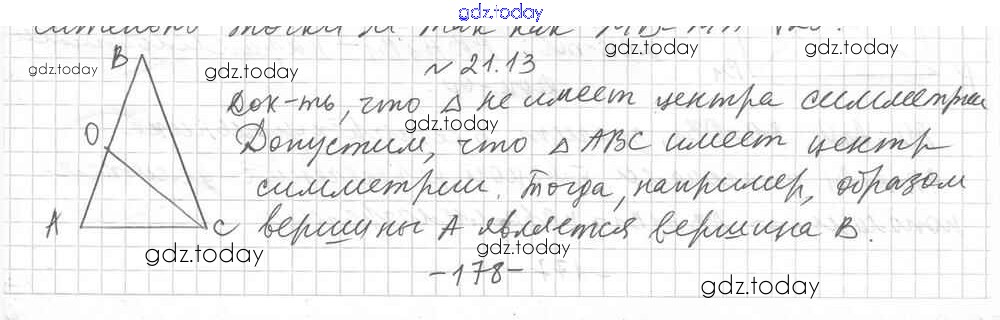 gdz.today
сительно точки M так как
№ 21.13
Док-ть, что △ не имеет центра симметрии
Допустим, что △ ABC имеет центр
симметрии. Тогда, например, образом
вершины A является вершина B.
-178-
B
O
A
C
gdz.today
gdz.today
gdz.today
gdz.today
gdz.today
gdz.today
gdz.today